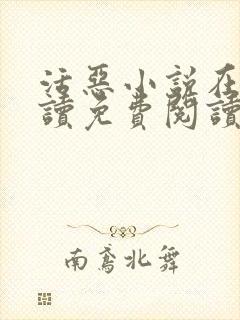 活惡小說在
讀免費閱讀
南鳶北舞